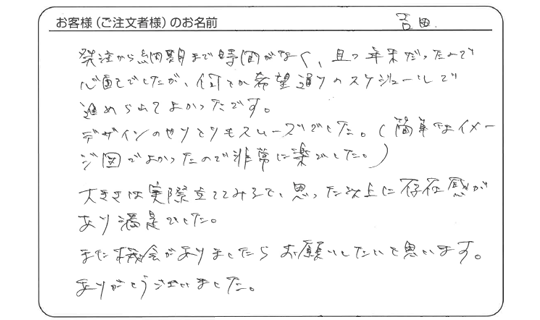 お客様(ご注文者様)のお名前 吉田
発注から納期まで時間がなく、且つ年末だったので
心配でしたが、何とか希望通りのスケジュールで
進められてよかったです。
デザインのやりとりもスムーズでした。(簡単なイメー
ジ図でよかったので非常に楽でした。)
大きさは実際立ててみると、思った以上に存在感が
あり満足でした。
また機会がありましたらお願いしたいと思います。
ありがとうございました。